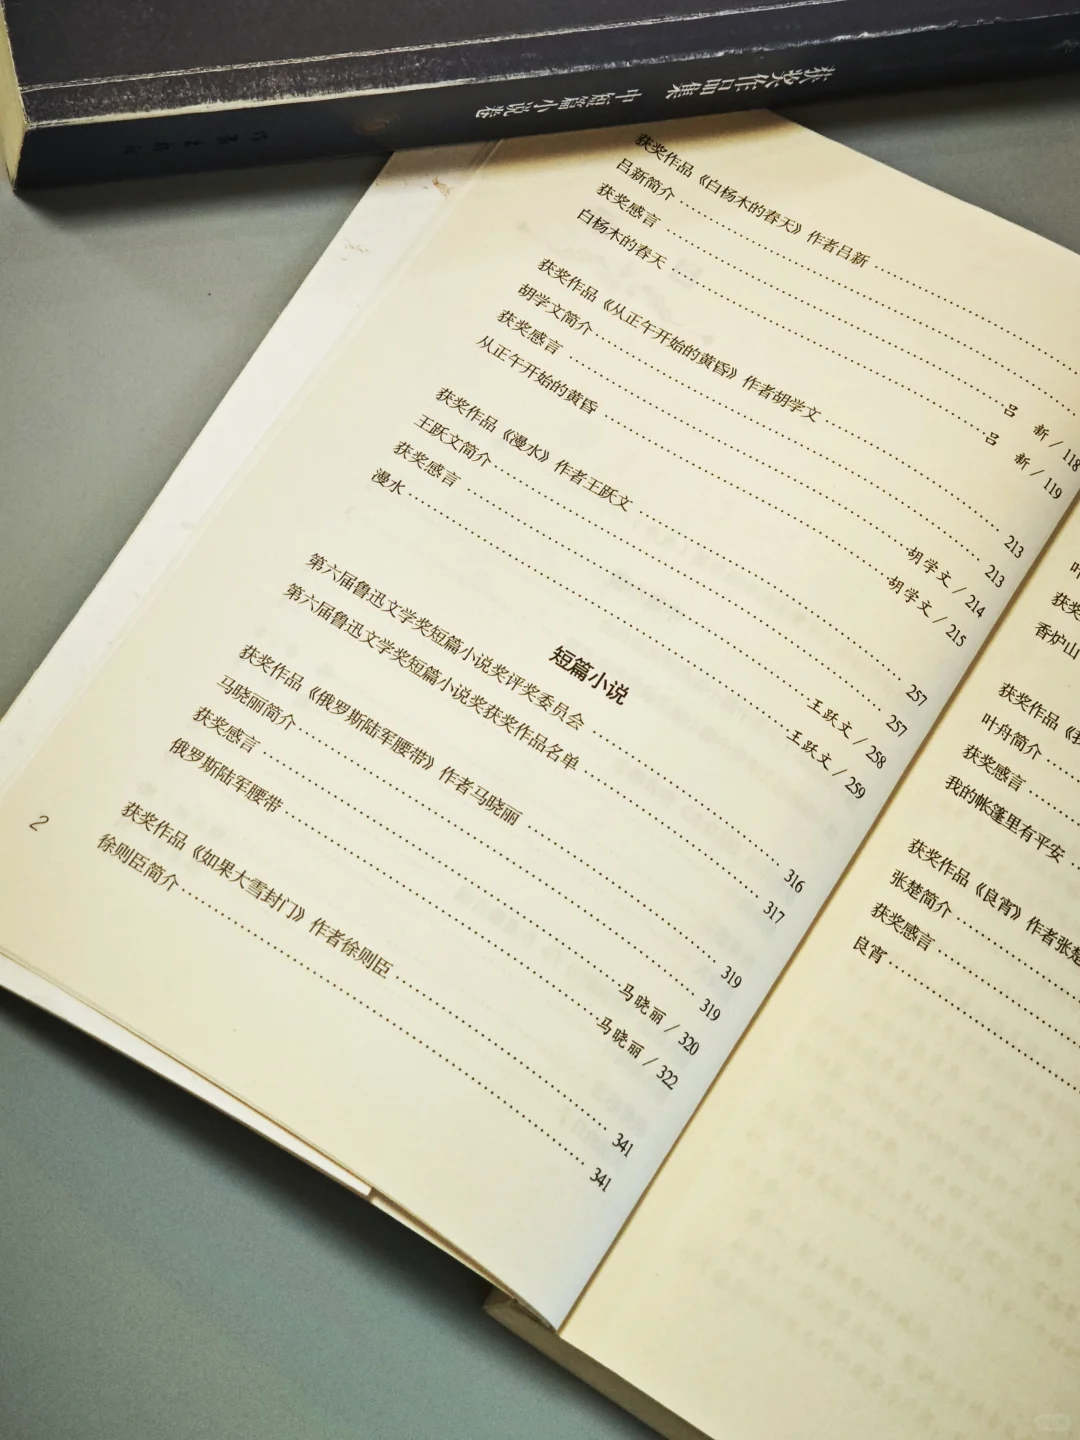 获奖作品集 中短篇小说卷
获奖作品《白杨木的春天》作者吕新
吕新简介
获奖感言 吕 新 / 118
白杨木的春天 吕 新 / 119
获奖作品《从正午开始的黄昏》作者胡学文 213
胡学文简介 213
获奖感言 胡学文 / 214
从正午开始的黄昏 胡学文 / 215
获奖作品《漫水》作者王跃文 257
王跃文简介 257
获奖感言 王跃文 / 258
漫水 王跃文 / 259
短篇小说
第六届鲁迅文学奖短篇小说奖评奖委员会 316
第六届鲁迅文学奖短篇小说奖获奖作品名单 317
获奖作品《俄罗斯陆军腰带》作者马晓丽 319
马晓丽简介 319
获奖感言 马晓丽 / 320
俄罗斯陆军腰带 马晓丽 / 322
获奖作品《如果大雪封门》作者徐则臣 341
徐则臣简介 341
2
叶
获奖
香炉山
获奖作品《我
叶舟简介
获奖感言
我的帐篷里有平安
获奖作品《良宵》作者张楚
张楚简介
获奖感言
良宵